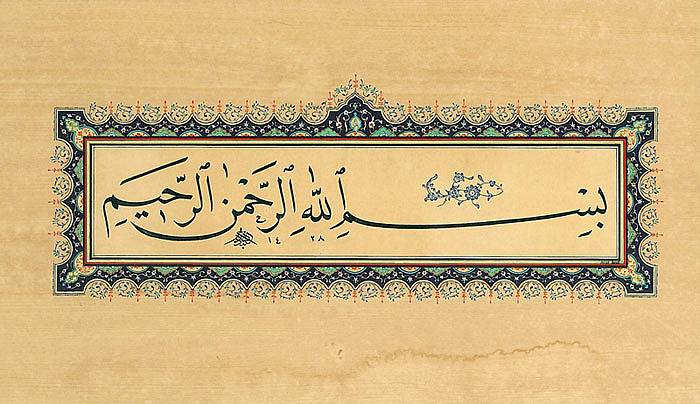 بِسْمِ اللهِ الرَّحْمٰنِ الرَّحِيمِ
١٤٢٨